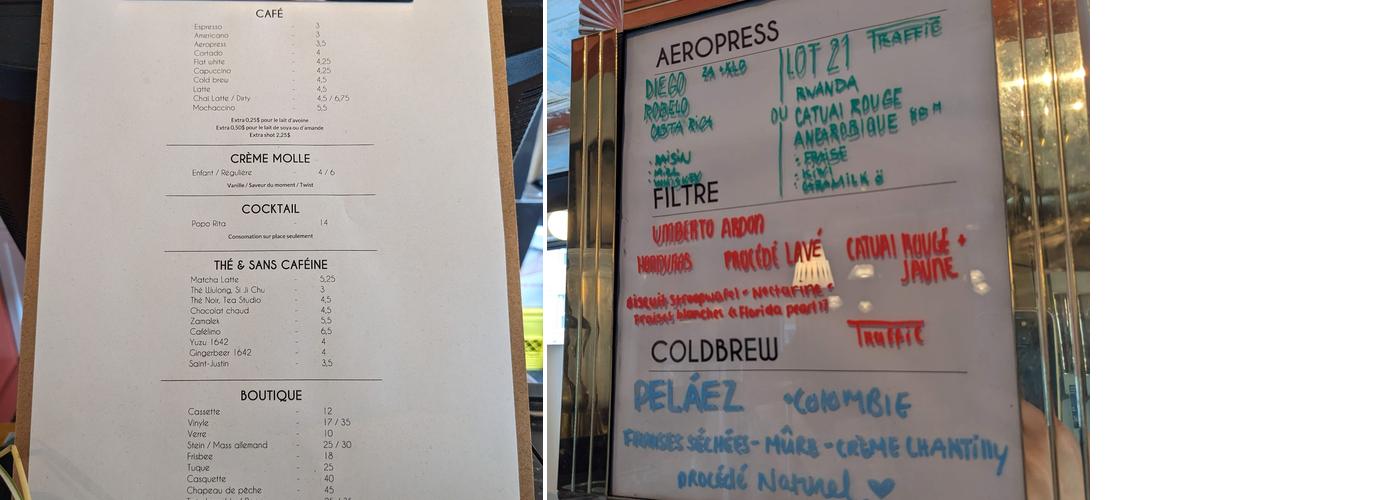 CAFÉ
Espresso - 3
Americano - 3
Aeropress - 3,5
Cortado - 4
Flat white - 4,25
Capuccino - 4,25
Cold brew - 4,5
Latte - 4,5
Chai Latte / Dirty - 4,5 / 6,75
Mochaccino - 5,5
Extra 0,25$ pour le lait d'avoine
Extra 0,50$ pour le lait de soya ou d'amande
Extra shot 2,25$
CRÈME MOLLE
Enfant / Régulière - 4 / 6
Vanille / Saveur du moment / Twist
COCKTAIL
Popo Rita - 14
Consomation sur place seulement
THÉ & SANS CAFÉINE
Matcha Latte - 5,25
Thé Wulong, Si Ji Chu - 3
Thé Noir, Tea Studio - 4,5
Chocolat chaud - 4,5
Zamalek - 5,5
Cafélimo - 6,5
Yuzu 1642 - 4
Gingerbeer 1642 - 4
Saint-Justin - 3,5
BOUTIQUE
Cassette - 12
Vinyle - 17 / 35
Verre - 10
Stein / Mass allemand - 25 / 30
Frisbee - 18
Tuque - 25
Casquette - 40
Chapeau de pêche - 45
AEROPRESS
DIEGO
ROBELO
COSTA RICA
• RAISIN
• MIEL
• WHISKEY
OU
LOT 21 TRAFFIC
RWANDA
CATUAI ROUGE
ANEAROBIQUE
• FRAISE
• KIWI
• CARAMILK
FILTRE
UMBERTO ARDON
HONDURAS PROCÉDÉ LAVÉ CATUAI ROUGE +
JAUNE
Biscuit stroopwafel - Nectarine -
Fraises blanches (Florida pearl)?
TRAFFIC
COLDBREW
PELÁEZ • COLOMBIE
FRAISES SÉCHÉES - MÛRE - CRÈME CHANTILLY
PROCÉDÉ Naturel